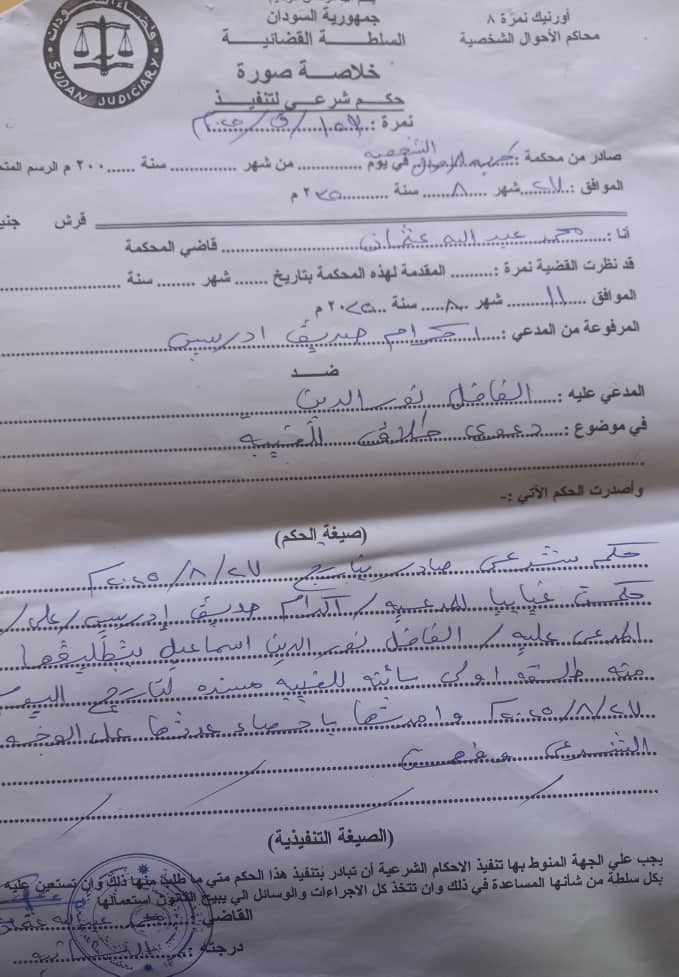 أورنيك نمرة ٨
محاكم الأحوال الشخصية
جمهورية السودان
السلطة القضائية
SUDAN JUDICIARY
خلاصة صورة
حكم شرعي لتنفيذ
نمرة :
صادر من محكمة : الشخصية في يوم ............ من شهر ............ سنة ......٢٠٠ م الرسم
الموافق :.. ٢٧ .. شهر .. ٨ .. سنة .. ٢٠٢٥ م
قرش
أنا : محمد عبد الله عثمان قاضي المحكمة
قد نظرت القضية نمرة :......... المقدمة لهذه المحكمة بتاريخ ....... شهر ........ سنة
الموافق .... ١١ .... شهر .. ٨ .. سنة .. ٢٠٢٥ م
المرفوعة من المدعي : اكرام صديق ادريس
ضد
المدعي عليه : الفاضل نور الدين
في موضوع : دعوى طلاق للغيبة
وأصدرت الحكم الآتي :-
(صيغة الحكم)
حكم شرعي صادر بتاريخ ٢٠٢٥/٨/٢٧
حكمت غيابيا للمدعية / اكرام صديق إدريس / على /
المدعى عليه / الفاضل نور الدين اسماعيل بتطليقها
منه طلقة اولى بائنة للغيبة مسنده لتاريخ اليوم
٢٠٢٥/٨/٢٧ وامرتها باحصاء عدتها على الوجه
الشرعي
(الصيغة التنفيذية)
يجب علي الجهة المنوط بها تنفيذ الاحكام الشرعية أن تبادر بتنفيذ هذا الحكم متي ما طلب منها ذلك وان تستعين عليه
بكل سلطة من شأنها المساعدة في ذلك وان تتخذ كل الاجراءات والوسائل الي يبيح القانون استعمالها
القاضي :
درجته :